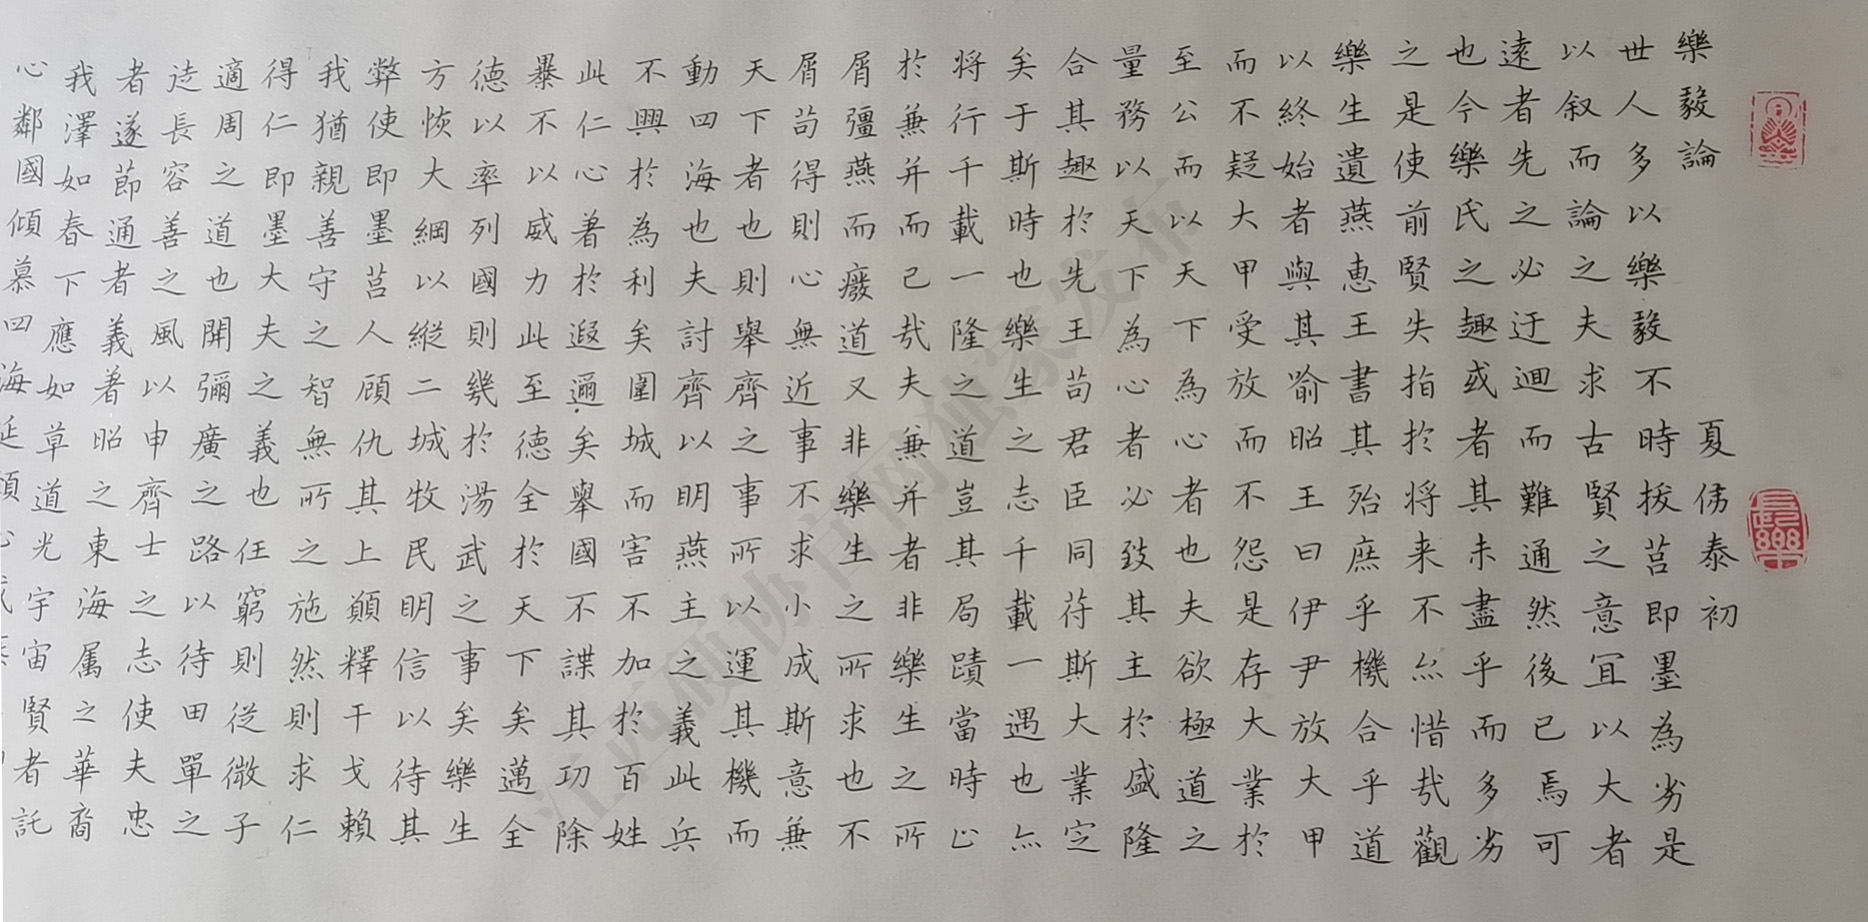 樂毅論 夏侯泰初
世人多以樂毅不時拔莒即墨為劣是
以叙而論之夫求古賢之意宜以大者
遠者先之必迂迴而難通然後已焉可
也今樂氏之趣或者其未盡乎而多劣
之是使前賢失指於将来不亦惜哉觀
樂生遺燕惠王書其殆庶乎機合乎道
以終始者與其喻昭王曰伊尹放大甲
而不疑大甲受放而不怨是存大業於
至公而以天下為心者也夫欲極道之
量務以天下為心者必致其主於盛隆
合其趣於先王苟君臣同苻斯大業定
矣于斯時也樂生之志千載一遇也亦
将行千載一隆之道豈其局蹟當時止
於兼并而已哉夫兼并者非樂生之所
屑彊燕而廢道又非樂生之所求也不
屑苟得則心無近事不求小成斯意兼
天下者也則舉齊之事所以運其機而
動四海也夫討齊以明燕主之義此兵
不興於為利矣圍城而害不加於百姓
此仁心著於遐邇矣舉國不謀其功除
暴不以威力此至德全於天下矣邁全
德以率列國則幾於湯武之事矣樂生
方恢大綱以縱二城牧民明信以待其
弊使即墨莒人顧仇其上願釋干戈賴
我猶親善守之智無所之施然則求仁
得仁即墨大夫之義也任窮則從微子
適周之道也開彌廣之路以待田單之
迲長容善之風以申齊士之志使夫忠
者遂節通者義著昭之東海属之華裔
我澤如春下應如草道光宇宙賢者託
心鄰國傾慕四海延頸
江西硬协官网独家发布